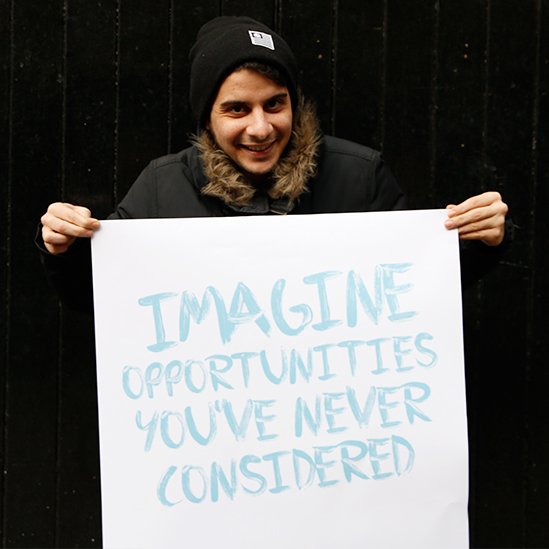 IMAGINE
OPPORTUNITIES
YOU'VE NEVER
CONSIDERED